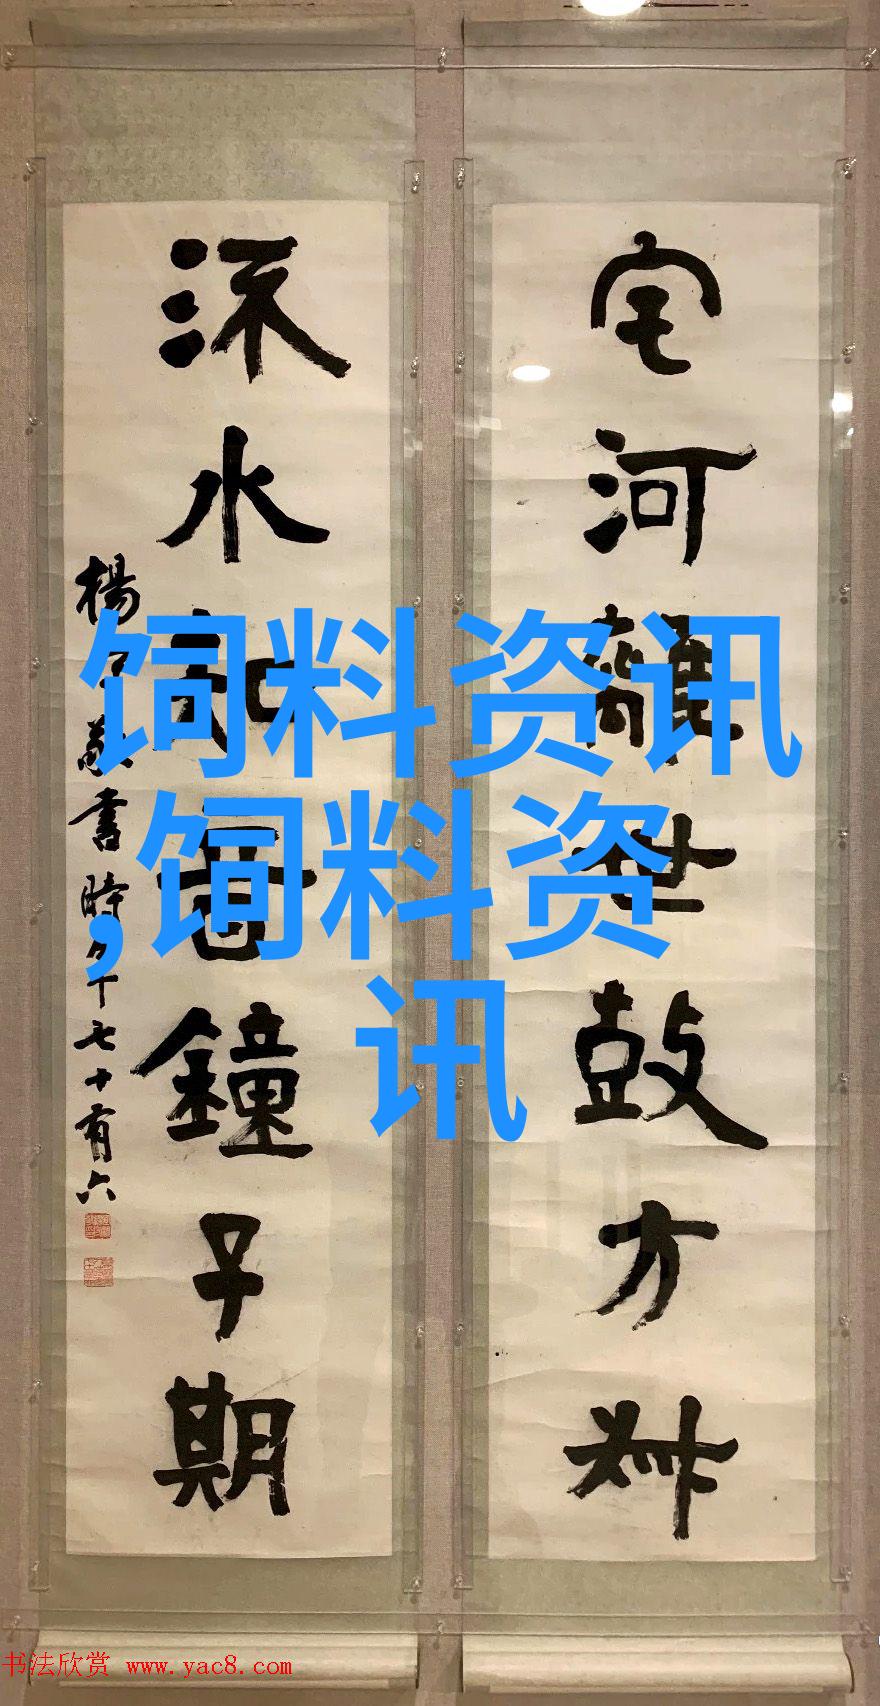 宅河離世鼓方叔
流水知音鐘子期
楊守敬書時年七十有六
饲料资讯
,饲料资
讯
书法欣赏 www.yac8.com